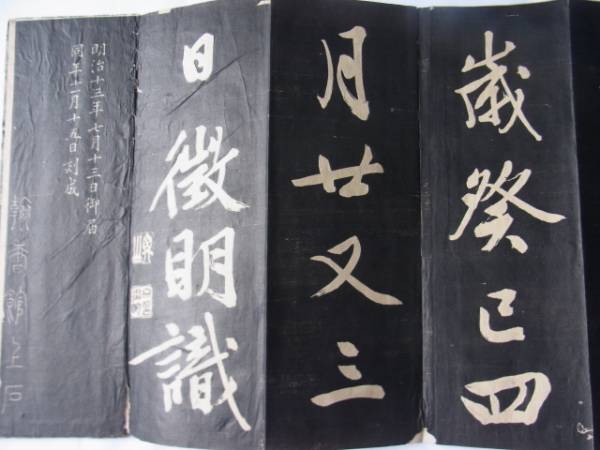 歳癸巳四
月廿又三
日徴明識
明治十三年七月十三日御届
同年十一月十五日刻成
翰香館上石